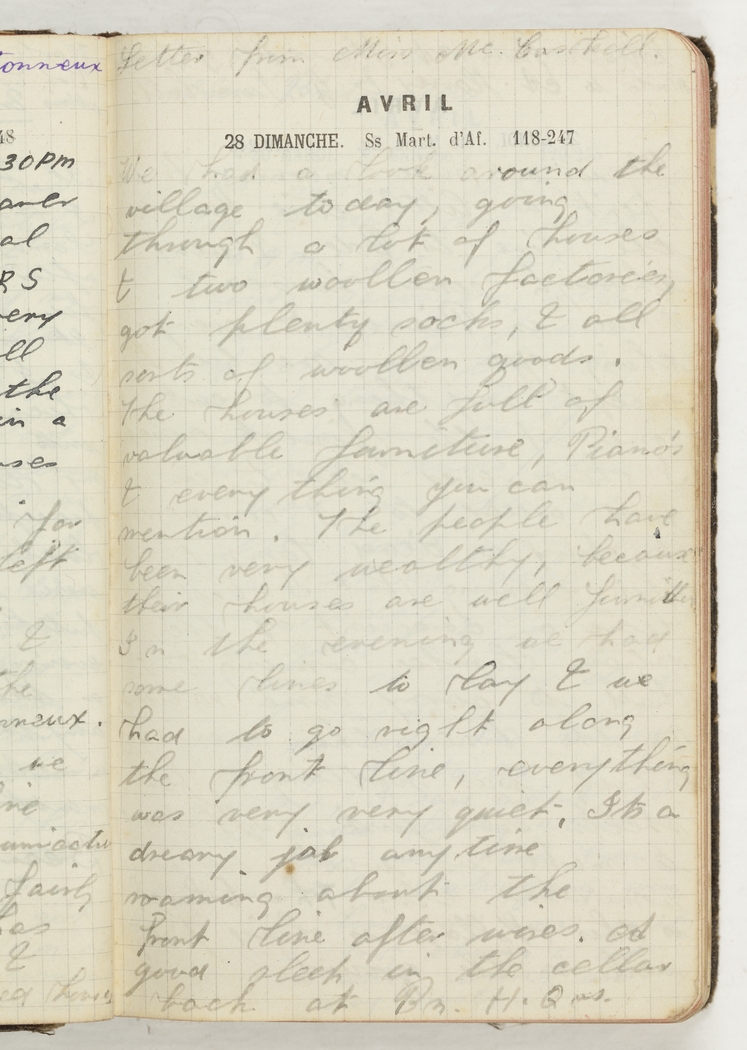 Letter from Miss Mc. Caskill.
AVRIL
28 DIMANCHE. Ss Mart. d'Af. 118-247
We had a look around the
village today, going
through a lot of houses
& two woollen factories,
got plenty socks, & all
sorts of woollen goods.
The houses are full of
valuable furniture, Piano's
& every thing you can
mention. The people have
been very wealthy, because
their houses are well
In the evening we had
some lines to lay & we
had to go right along
the front line, everything
was very very quiet. Its a
dreary job any time
roaming about the
front line after wires. A
good sleep in the cellar
back at Bn. H. Qrs.
onneux
48
30PM
al
RS
very
ll
the
in a
uses
for
left
&
the
nneux.
we
ine
fairly
has
&
ed houses